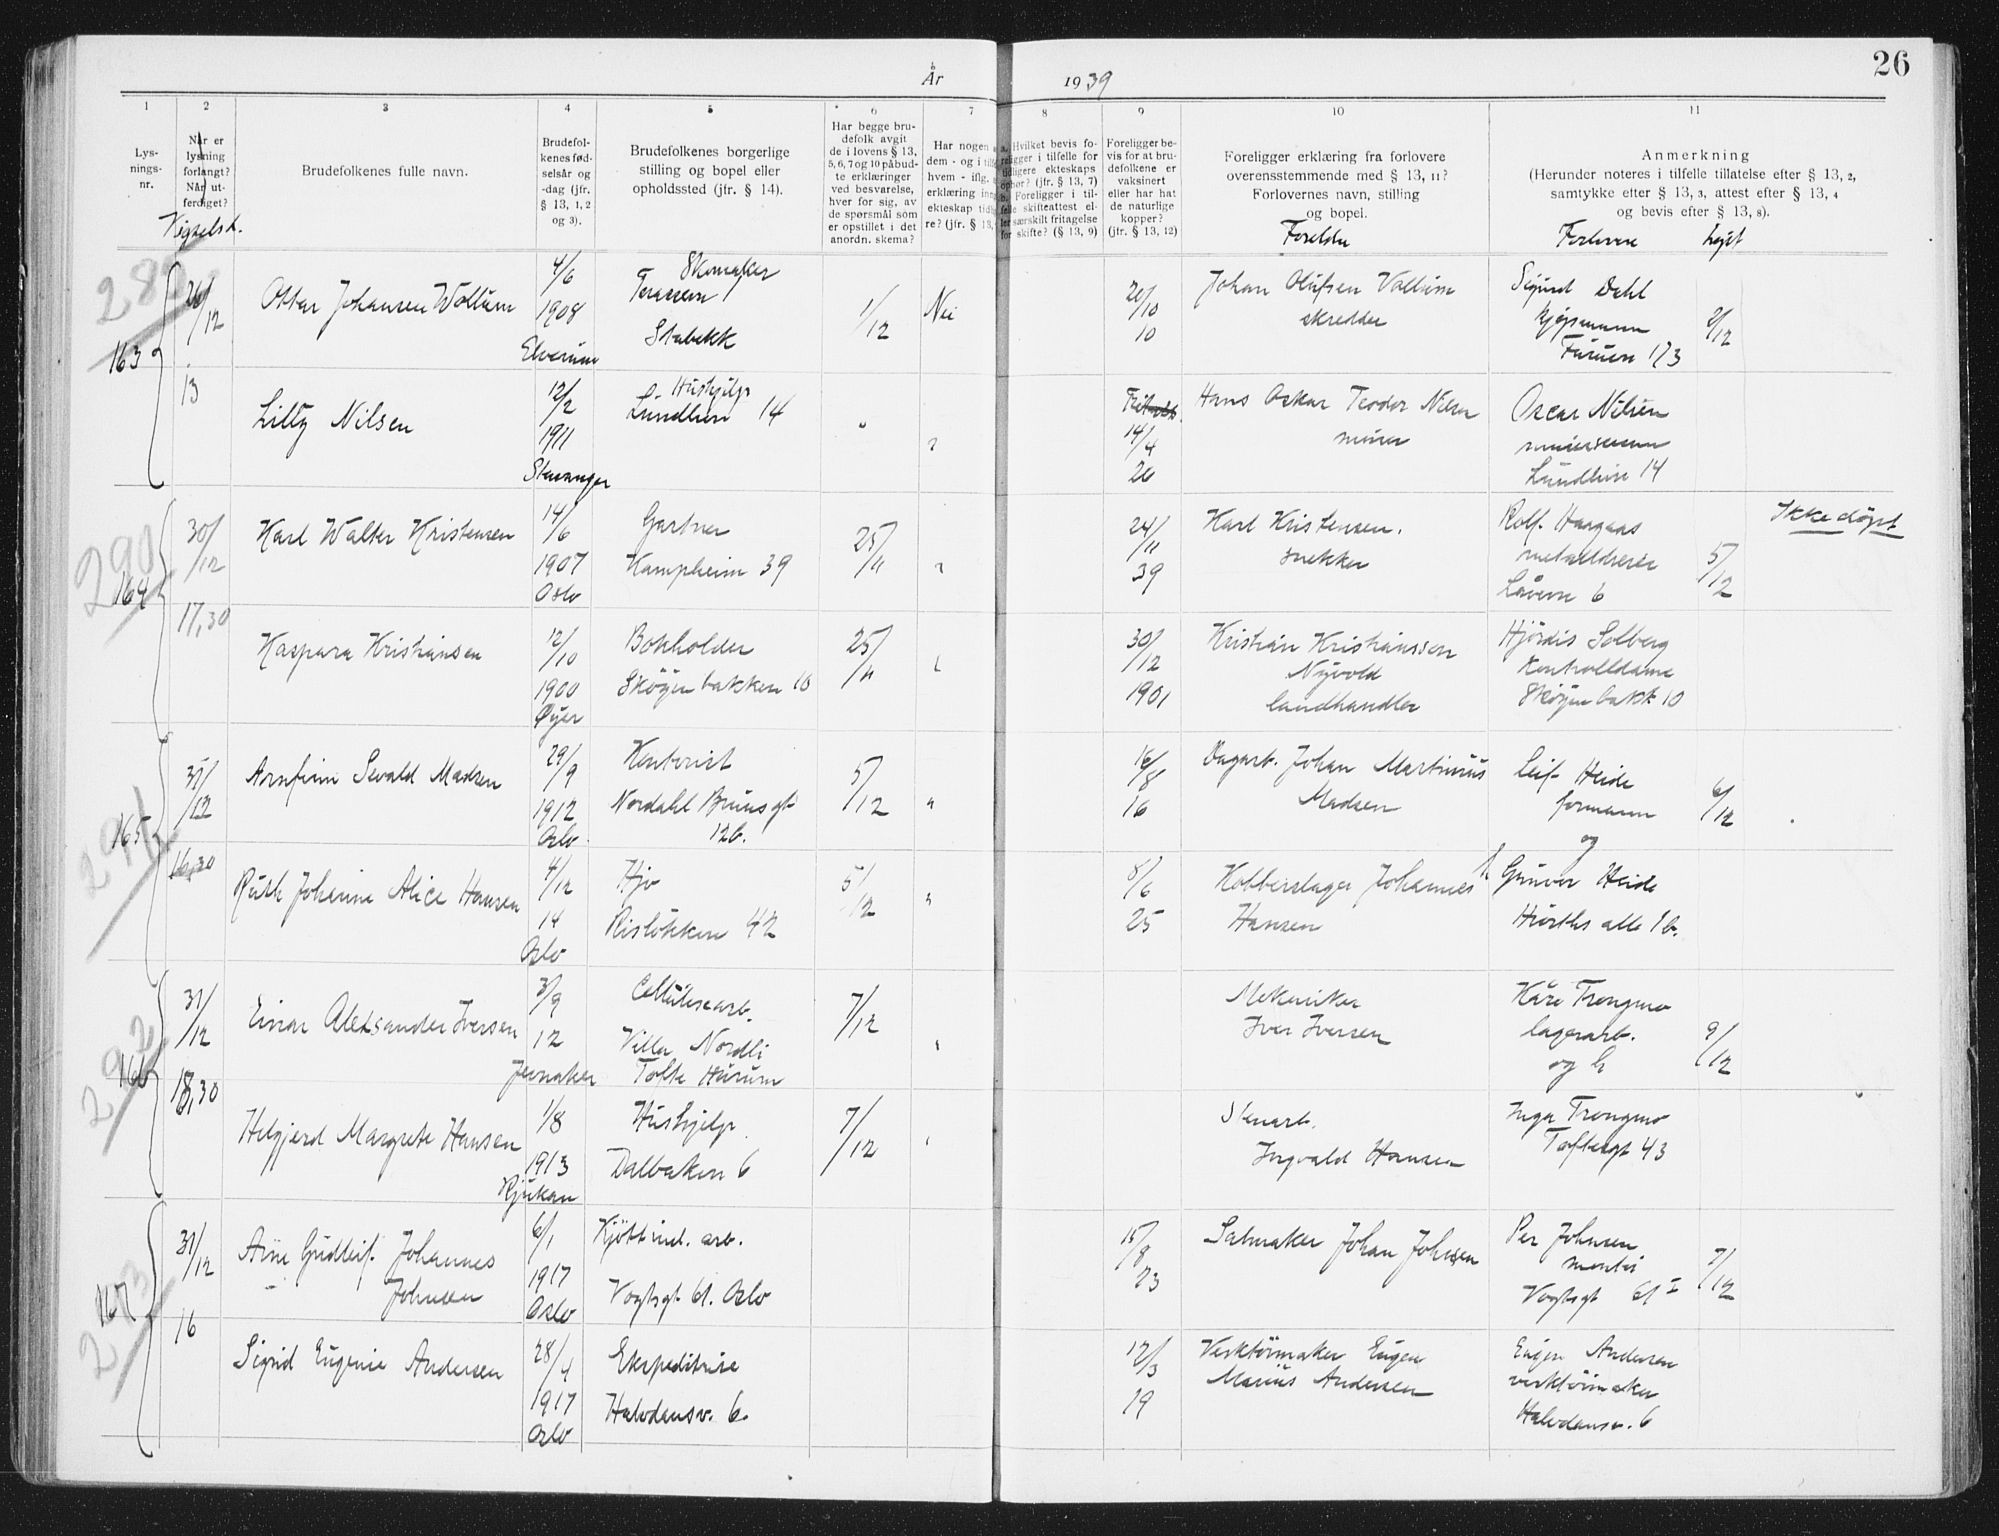 26
År 1939
1 2 3 4 5 6 7 8 9 10 11
Lys-
nings-
nr.
Når er
lysning
forlangt?
Når ut-
ferdiget?
Vigselsd.
Brudefolkenes fulle navn.
Brudefol-
kenes fød-
selsår og
-dag (jfr.
§ 13, 1, 2
og 3).
Brudefolkenes borgerlige
stilling og bopel eller
opholdssted (jfr. § 14).
Har begge bru-
defolk avgit
de i lovens § 13,
5, 6, 7 og 10 påbud-
te erklæringer
ved besvarelse,
hver for sig, av
de spørsmål som
er opstillet i det
anordn. skema?
Har nogen
dem - og i
hvem - iflg.
erklæring
ekteskap
re? (jfr. § 13,
Hvilket bevis fo-
religger i tilfelle for
tidligere ekteskaps
ophør? (jfr. § 13, 7)
b. Foreligger i til-
felle skifteattest el-
ler særskilt fritagelse
for skifte? (§ 13, 9)
Foreligger be-
vis for at bru-
defolkene er
vaksinert
eller har hat
de naturlige
kopper?
(jfr. § 13, 12)
Foreligger erklæring fra forlovere
overensstemmende med § 13, 11?
Forlovernes navn, stilling
og bopel.
Foreldre
Anmerkning
(Herunder noteres i tilfelle tillatelse efter § 13, 2,
samtykke efter § 13, 3, attest efter § 13, 4
og bevis efter § 13, 8).
Forlovere lyst
163
26/12
13
Ottar Johansen Wollum
4/6
1908
Elverum
Skomaker
Terassen
Stabekk
1/12
Nei
20/10
10
Johan Olufsen Vollum
skredder
Sigurd Dahl
kjøpmann
Furuen 173
2/12
Lilly Nilsen
12/2
1911
Stavanger
Hushjelp
Lundlien 14
"
"
14/4
26
Hans Oskar Teodor Nilsen
murer
Oscar Nilsen
Lundlien 14
290
164
30/12
17,30
Karl Walter Kristensen
14/6
1907
Oslo
Gartner
Kampheim 39
25/11
"
24/11
39
Karl Kristensen.
snekker
Rolf Haagaas
metalldreier
Låveien 6
5/12
Ikke døpt
Kaspara Kristiansen
12/10
1900
Øyer
Bokholder
Skøyenbakken 10
25/11
"
30/12
1901
Kristian Kristianssen
Nyvold
landhandler
Hjördis Solberg
Kontrolldame
Skøyenbakk 10
291
165
31/12
16,30
Arnfinn Sevald Madsen
29/9
1912
Oslo.
Kontorist
Nordahl Brunsgt
12b.
5/12
"
16/8
16
Vognarb. Johan Martinius
Madsen
Leif Heide
formann
og
6/12
Ruth Johanne Alice Hansen
4/12
14
Oslo
Hjv
Risløkken 42
5/12
"
8/6
25
Kobberslager Johannes
Hansen
Gunvor Heide
Hiorths alle 1b.
292
166
31/12
18,30
Einar Aleksander Iversen
3/9
12
Jevnaker
Cellulosearb.
Villa Nordli
Tofte Hurum
7/12
"
Mekaniker
Iver Iversen
Kåre Trengmo
lagerarb.
og h
9/12
Helgjerd Margrete Hansen
1/8
1913
Rjukan
Hushjelp
Dalbakken 6
7/12
"
Stenarb.
Ingvald Hansen
Inga Trengmo
Toftesgt 43
293
167
31/12
16
Arne Gudleif Johannes
Johnsen
6/1
1917
Oslo
Kjöttind. arb.
Vogtsgt 61. Oslo
15/8
23
Salmaker Johan Johnsen
Per Johnsen
montör
Vogtsgt 61 I
7/12
Sigrid Eugenie Andersen
28/4
1917
Oslo
Ekspeditrise
Halvdansv. 6.
12/3
19
Verktöimaker Eugen
Marius Andersen
Eugen Andersen
verktöimaker
Halvdansv. 6